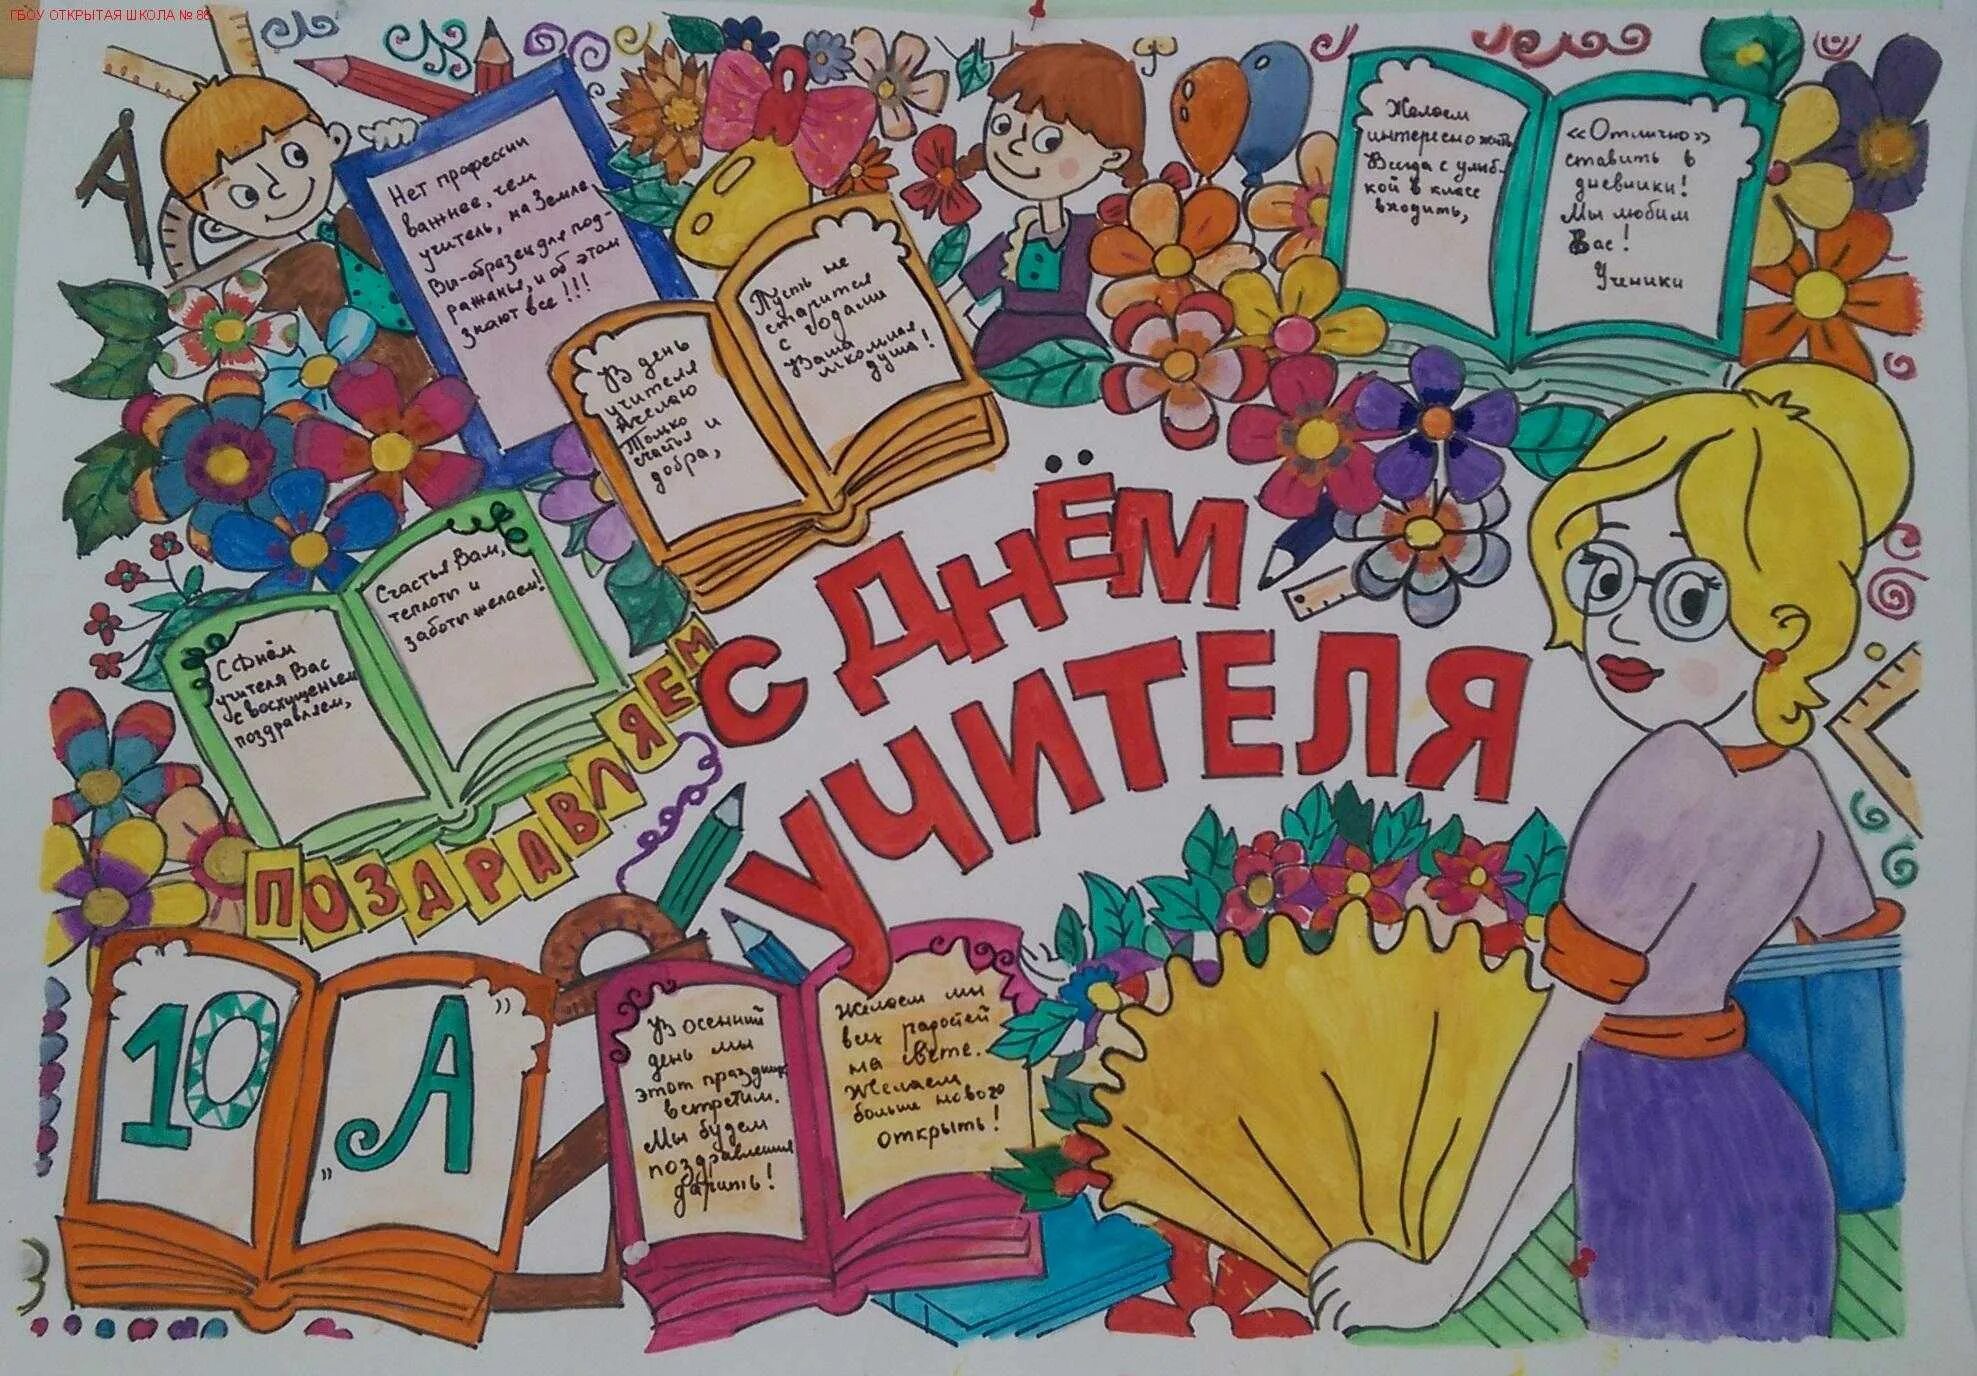 ГБОУ ОТКРЫТАЯ ШКОЛА № 86
Нет профессии
важнее, чем
учитель, на Земле
Вы-образец для под-
ражанья, и об этом
знают все!!!
В день
учителя
желаю
Только
счастья и
добра,
Пусть не
старится
с годами
Ваша
школьная
душа!
Желаем
интересно жить
Всегда с улыб-
кой в класс
входить,
«Отлично»
ставить в
дневники!
Мы любим
Вас!
Ученики
С Днём
учителя Вас
с восхищеньем
поздравляем,
Счастья Вам,
теплоты и
заботы желаем!
ПОЗДРАВЛЯЕМ
С ДНЁМ
УЧИТЕЛЯ
10 „А"
В осенний
день мы
этот праздник
встретим.
Мы будем
поздравления
дарить!
Желаем мы
всех радостей
на свете.
Желаем
больше нового
открыть!